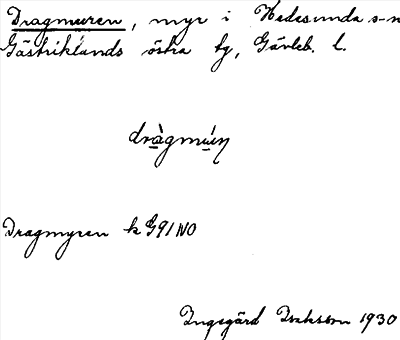 Dragmuren, myr i Hedesunda s-n
Gästriklands östra tg, Gävleb. l.
Dragmyren k G91 NO
Ingegärd Isaksson 1930